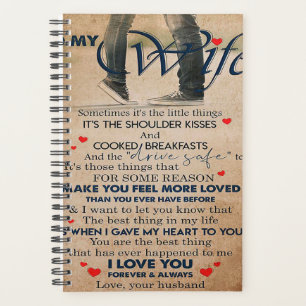 MY
Wife
Sometimes it's the little things
IT'S THE SHOULDER KISSES
And
COOKED/ BREAKFASTS
And the "drive safe" to
It's those things that
FOR SOME REASON
MAKE YOU FEEL MORE LOVED
THAN YOU EVER HAVE BEFORE
& I want to let you know that
The best thing in my life
WHEN I GAVE MY HEART TO YOU
You are the best thing
that has ever happened to me
I LOVE YOU
FOREVER & ALWAYS
Love, your husband